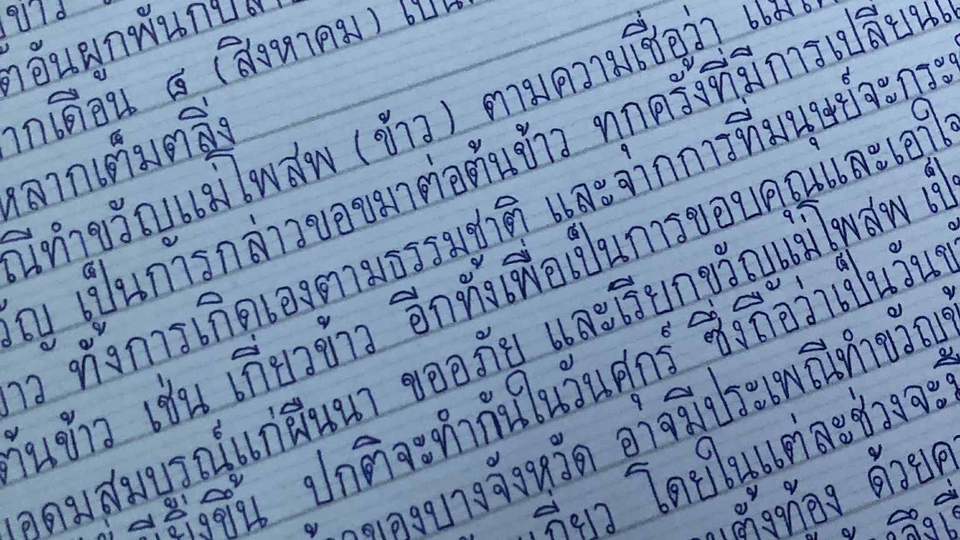 ข้าว
อันผูกพันกับ
เดือน ๘ (สิงหาคม) เป็น
หลากเต็มตลิ่ง
ทำขวัญแม่โพสพ (ข้าว) ตามความเชื่อว่า
เป็นการกล่าวขอขมาต่อต้นข้าว ทุกครั้งที่มีการเปลี่ยน
ทั้งการเกิดเองตามธรรมชาติ และจากการที่มนุษย์จะ
ต้นข้าว เช่น เกี่ยวข้าว อีกทั้งเพื่อเป็นการขอบคุณและเอาใจ
สมบูรณ์แก่ผืนนา ขออภัย และเรียกขวัญแม่โพสพ เป็น
ยิ่งขึ้น ปกติจะทำกันในวันศุกร์ ซึ่งถือว่าเป็นวันขวัญ
ของบางจังหวัด อาจมีประเพณีทำขวัญ
เกี่ยว โดยในแต่ละช่วงจะ
ตั้งท้อง ด้วย